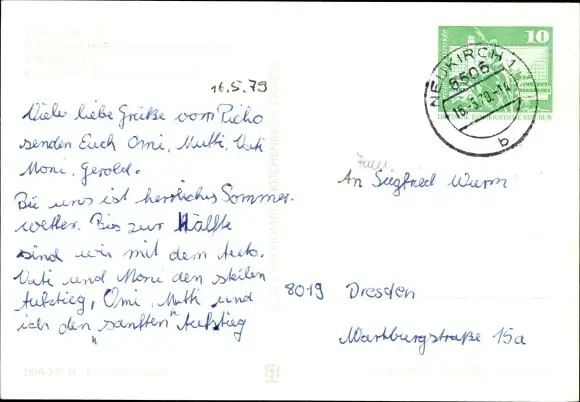 16.5.79
Viele liebe Grüße vom Picho
senden Euch Omi, Mutti, Vati
Moni, Gerold.
Bei uns ist herrliches Sommer-
wetter. Bis zur Hälfte
sind wir mit dem Auto.
Vati und Moni den steilen
Aufstieg, Omi, Mutti und
ich den "sanften" Aufstieg
10
DEUTSCHE DEMOKRATISCHE REPUBLIK
NEUKIRCH 1
8505
16.-5.79.-14
b
Fam.
An Siegfried Wurm
8019 Dresden
Wartburgstraße 15a